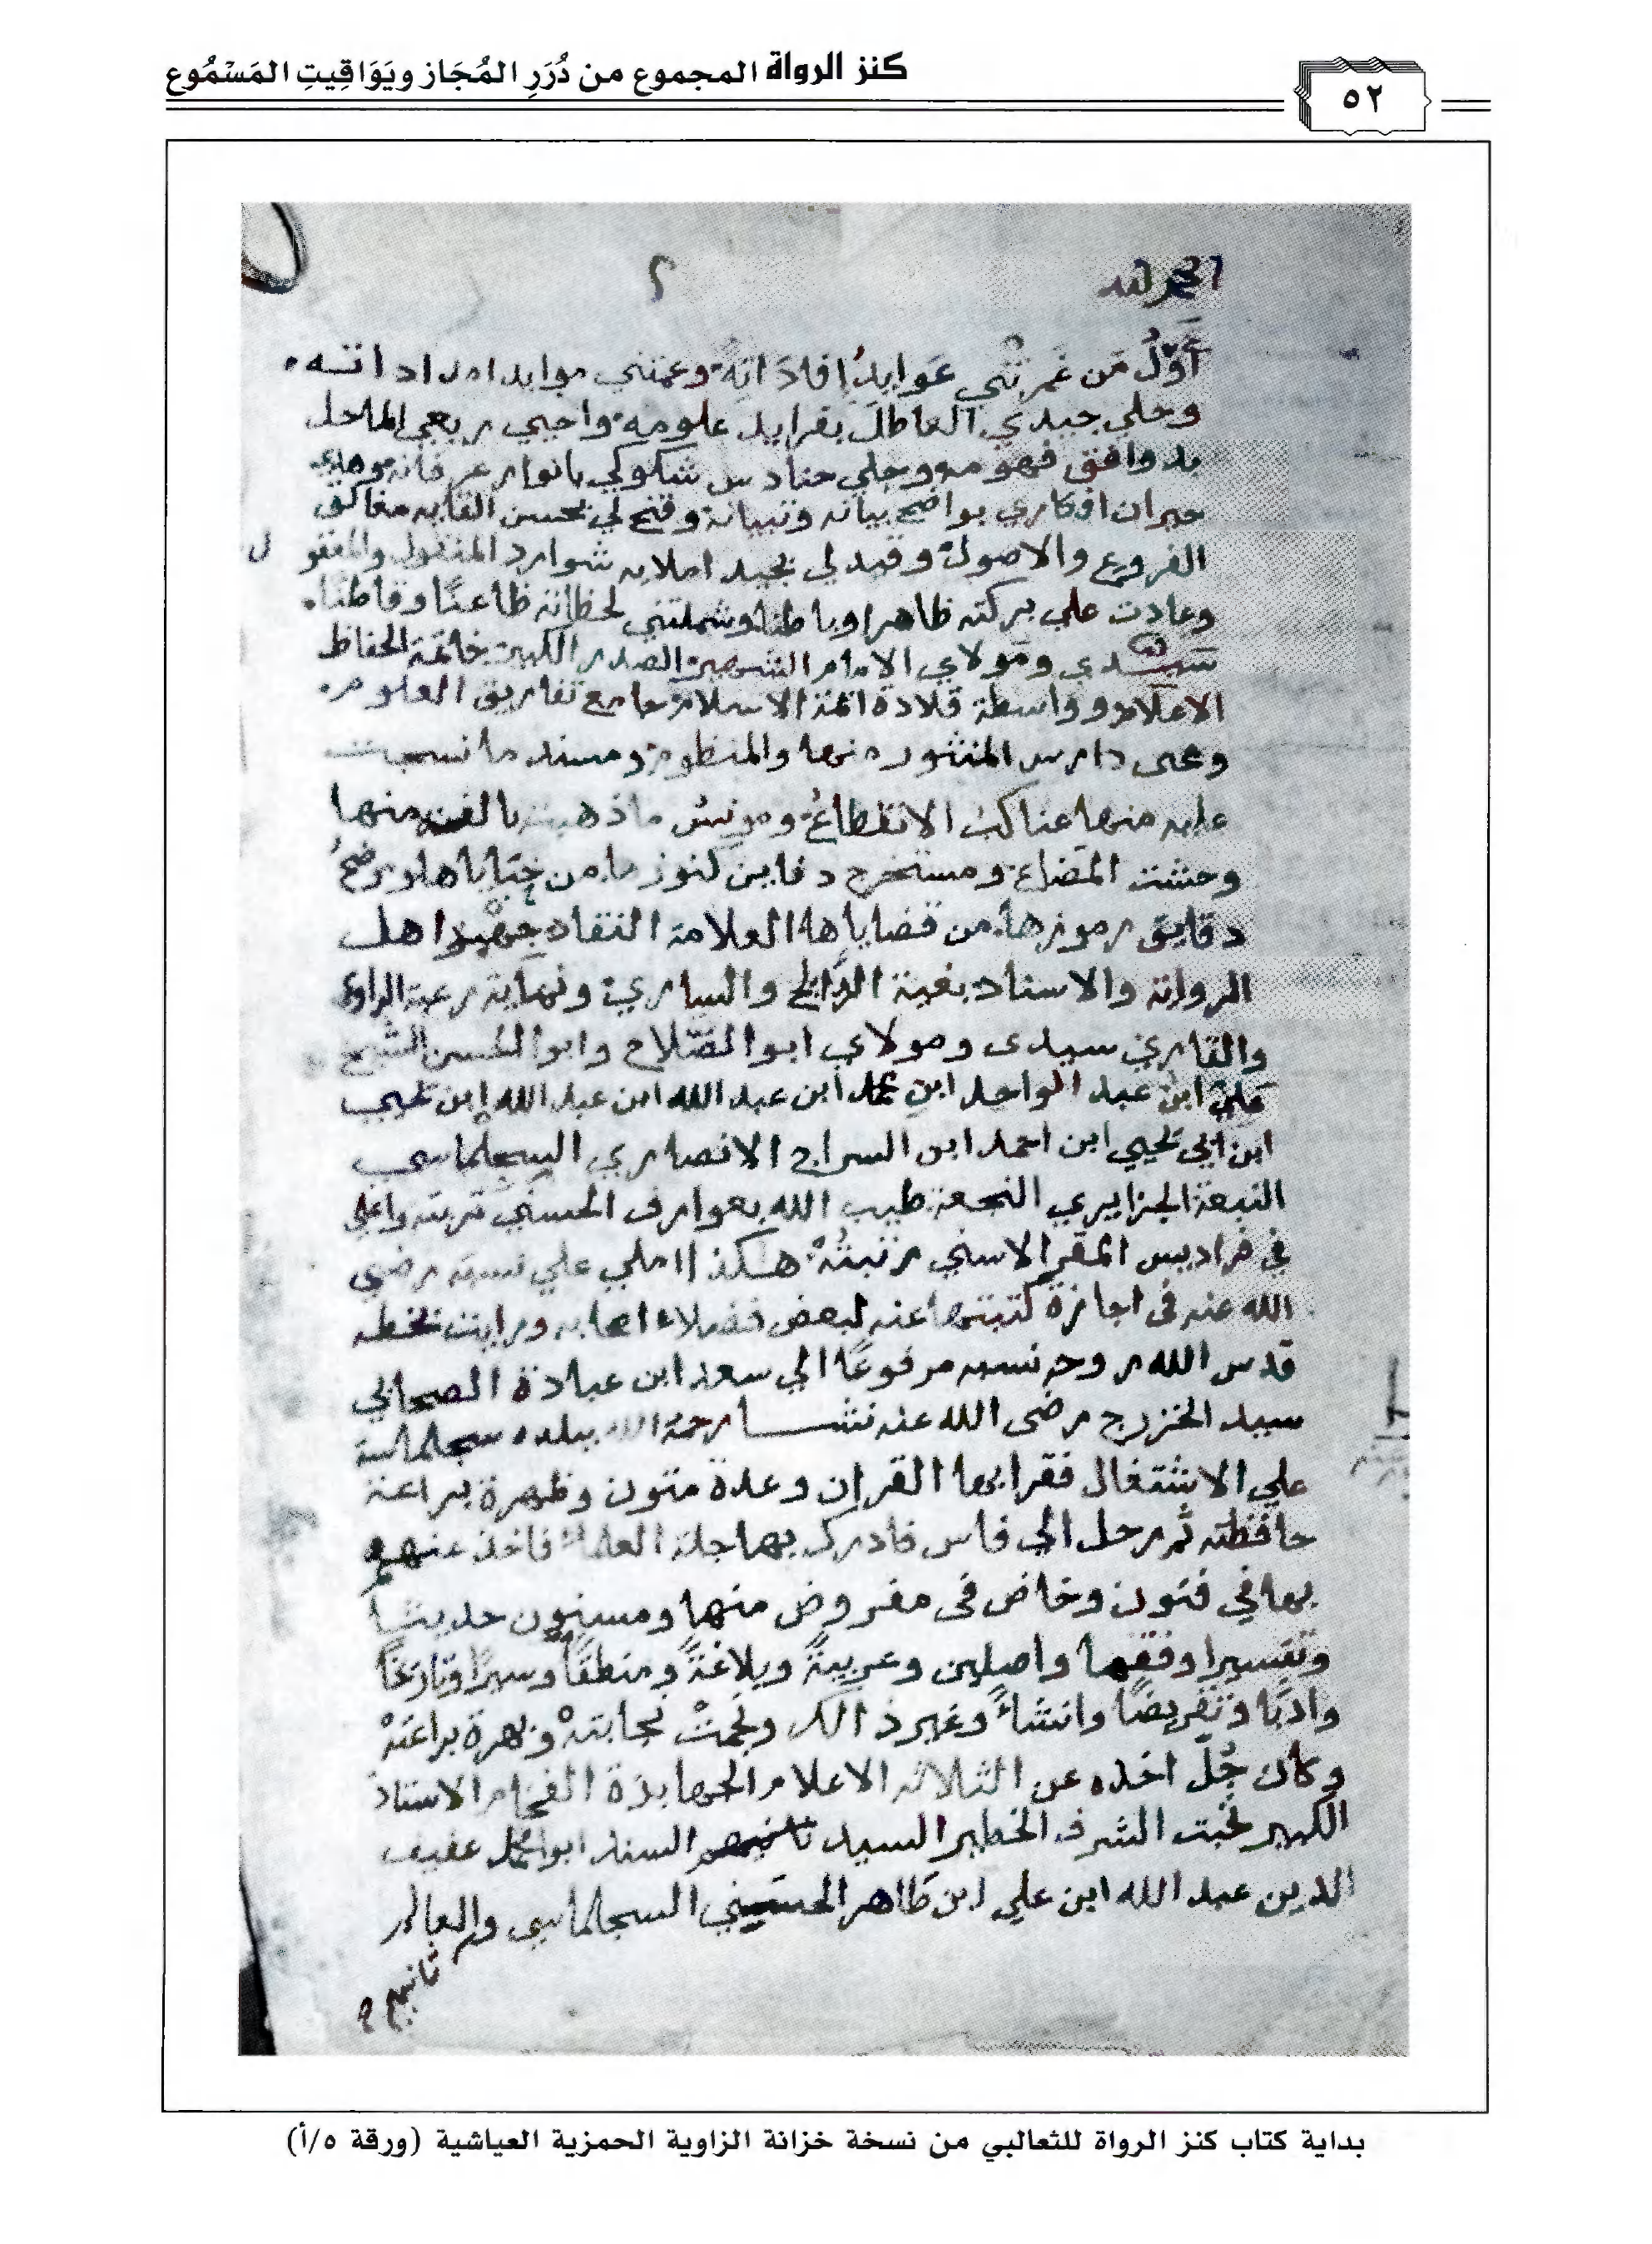 كنز الرواة المجموع من دُرَرِ المُجَاز ويَوَاقِيتِ المَسْمُوع
٥٢
الحمد لله
٢
أَوَّلُ مَن غَمرتْني عَوايدُ إفادَاتِهِ وعمتني موايد امداداته
وحلي جيدي العاطل بفرايد علومه واحيي ربعي الماحل
بدوافق فهومه وجلي حنادس شكوكي بانوار عرفانه وهدي
حيران افكاري بواضح بيانه وتبيانه وفتح لي بحسن القايه مغالق
الفروع والاصول وقيد لي بجيد املايه شوارد المنقول والمعقول
وعادت علي بركته ظاهرا وباطنا وشملتني لحظاته ظاعنًا وقاطنًا
سيدي ومولاي الامام الشهير الصدر الكبير خاتمة الحفاظ
الاعلام وواسطة قلادة ائمة الاسلام جامع تفاريق العلوم
ومحيى دارس المنثور منها والمنظوم ومسند ما نسجت
عليه منها عناكب الانقطاع ومونس ما ذهبت بالفت منها
وحشت المضاع ومستخرج دفاين كنوزها من خباياها وموضح
دقايق رموزها من قضاياها العلامة النقاد جهبذ اهل
الرواية والاسناد بغية الرايح والساري ونهاية رغبة الراوي
والقاري سيدى ومولاي ابوا الصلاح وابوا الحسن الشيخ
علي ابن عبد الواحد ابن محمد ابن عبد الله ابن عبد الله ابن يحيي
ابن ابي يحيي ابن احمد ابن السراج الانصاري السجلماسي
النبعة الجزايري النجعة طيب الله بعوارف الحسني تربته واعلي
في فراديس المقر الاسني رتبتُهْ هكذا املي علي نسبه رضي
الله عنه في اجازة كتبتها عنه لبعض فضلاء اصحابه ورايت بخطه
قدس الله روحه نسبه مرفوعًا الي سعد ابن عبادة الصحابي
سيد الخزرج رضى الله عنه نشا رحمة الله ببلده سجلماسة
علي الاشتغال فقرا بها القران وعدة متون وظهرة براعة
حافظته ثم رحل الي فاس فادرك بها جلة العلماء فاخذ عنهم
بها في فنون وخاض في مفروض منها ومسنون حديثًا
وتفسيرا وفقها واصلين وعربيةً وبلاغةً ومنطقًا وسيرًا وتاريخًا
وادبًا وتقريضًا وانشاءً وغير ذالك ونجمتْ نجابتهْ وبهرة براعتهْ
وكان جُلّ اخذه عن الثلاثة الاعلام الجهابذة الفخام الاستاذ
الكبير نخبت الشرف الخطير السيد السند ابوا محمد عفيف
الدين عبد الله ابن علي ابن طاهر الحسني السجلماسي والعالم
ثانيهم
بداية كتاب كنز الرواة للثعالبي من نسخة خزانة الزاوية الحمزية العياشية (ورقة ٥/أ)